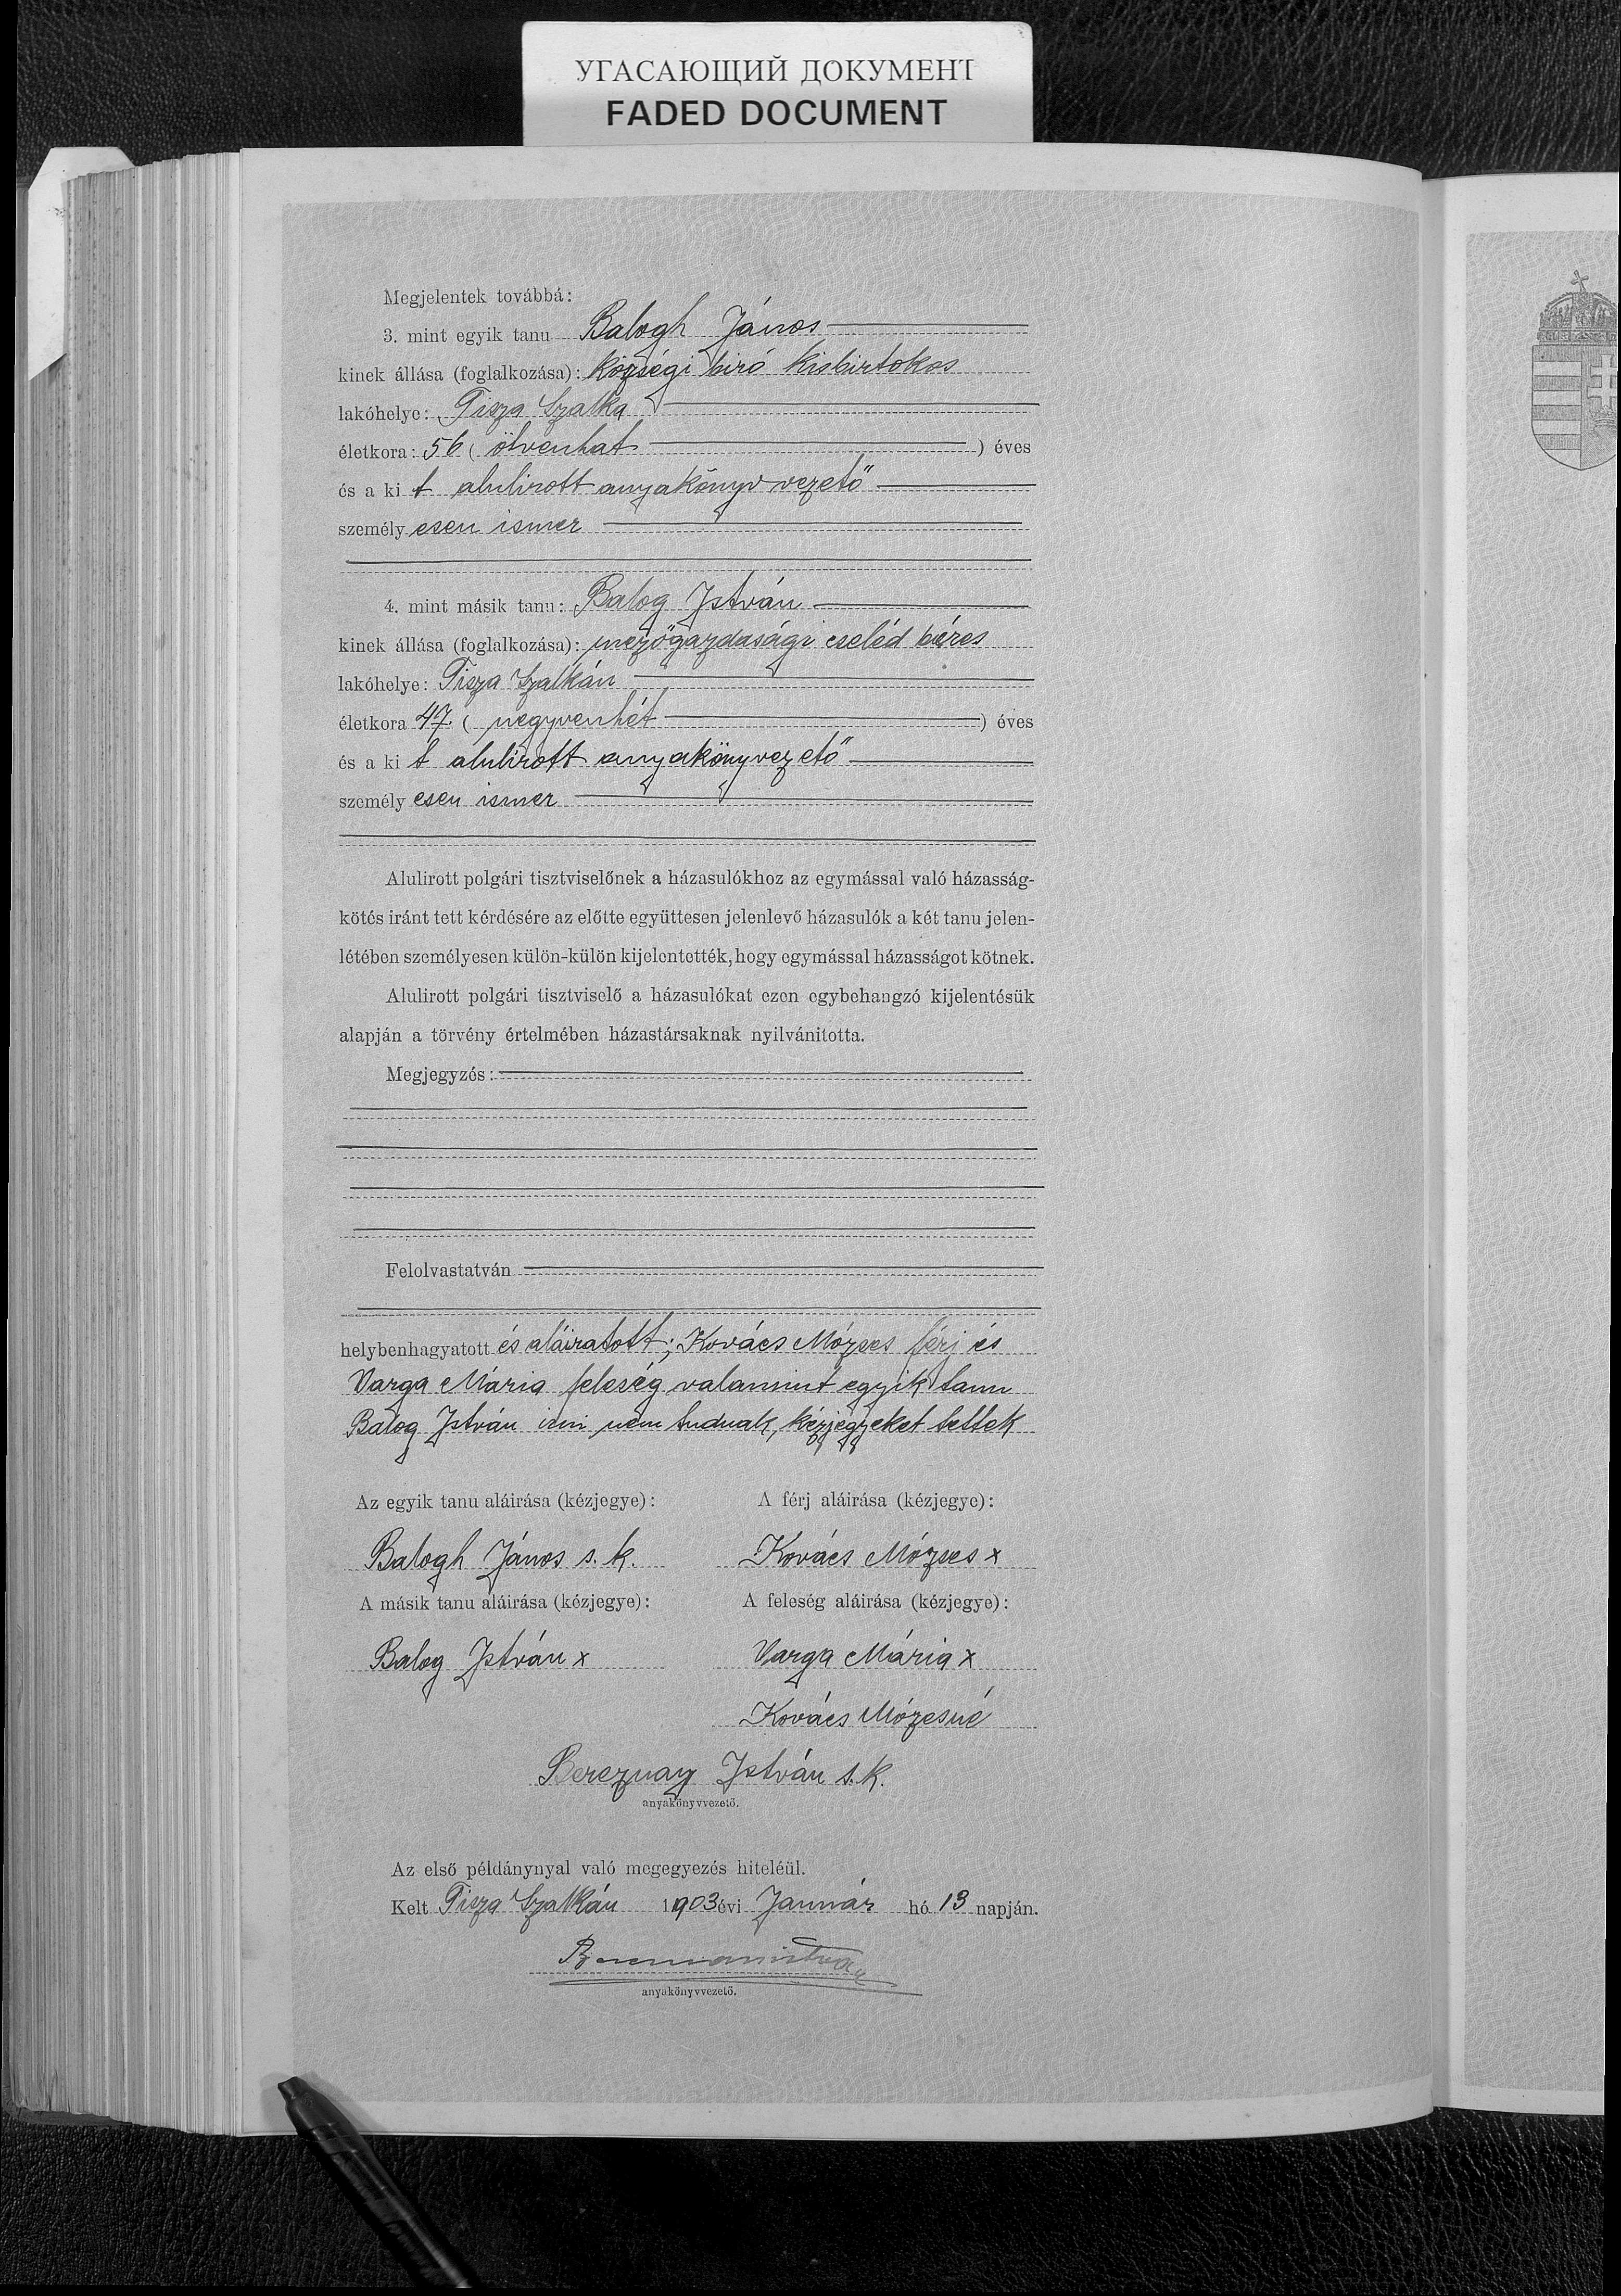 УГАСАЮЩИЙ ДОКУМЕНТ
FADED DOCUMENT
Megjelentek továbbá:
3. mint egyik tanu Balogh János
kinek állása (foglalkozása): községi biró kisbirtokos
lakóhelye: Tisza Szalka
életkora: 56 (ötvenhat) éves
és a kit alulirott anyakönyvvezető
személyesen ismer
4. mint másik tanu: Balog István
kinek állása (foglalkozása): mezőgazdasági cseléd béres
lakóhelye: Tisza Szalkán
életkora 47. (negyvenhét) éves
és a kit alulirott anyakönyvezető
személyesen ismer
Alulirott polgári tisztviselőnek a házasulókhoz az egymással való házasság-
kötés iránt tett kérdésére az előtte együttesen jelenlevő házasulók a két tanu jelen-
létében személyesen külön-külön kijelentették, hogy egymással házasságot kötnek.
Alulirott polgári tisztviselő a házasulókat ezen egybehangzó kijelentésük
alapján a törvény értelmében házastársaknak nyilvánitotta.
Megjegyzés:
Felolvastatván
helybenhagyatott és aláiratott; Kovács Mózses férj és
Varga Mária feleség valamint egyik tanu
Balog István irni nem tudnak, kézjegyeket tettek
Az egyik tanu aláirása (kézjegye): A férj aláirása (kézjegye):
Balogh János s. k. Kovács Mózses x
A másik tanu aláirása (kézjegye): A feleség aláirása (kézjegye):
Balog István x Varga Mária x
Kovács Mózesné
Bereznay István s. k.
anyakönyvvezető.
Az első példánynyal való megegyezés hiteléül.
Kelt Tisza Szalkán 1903 évi Január hó 13 napján.
anyakönyvvezető.